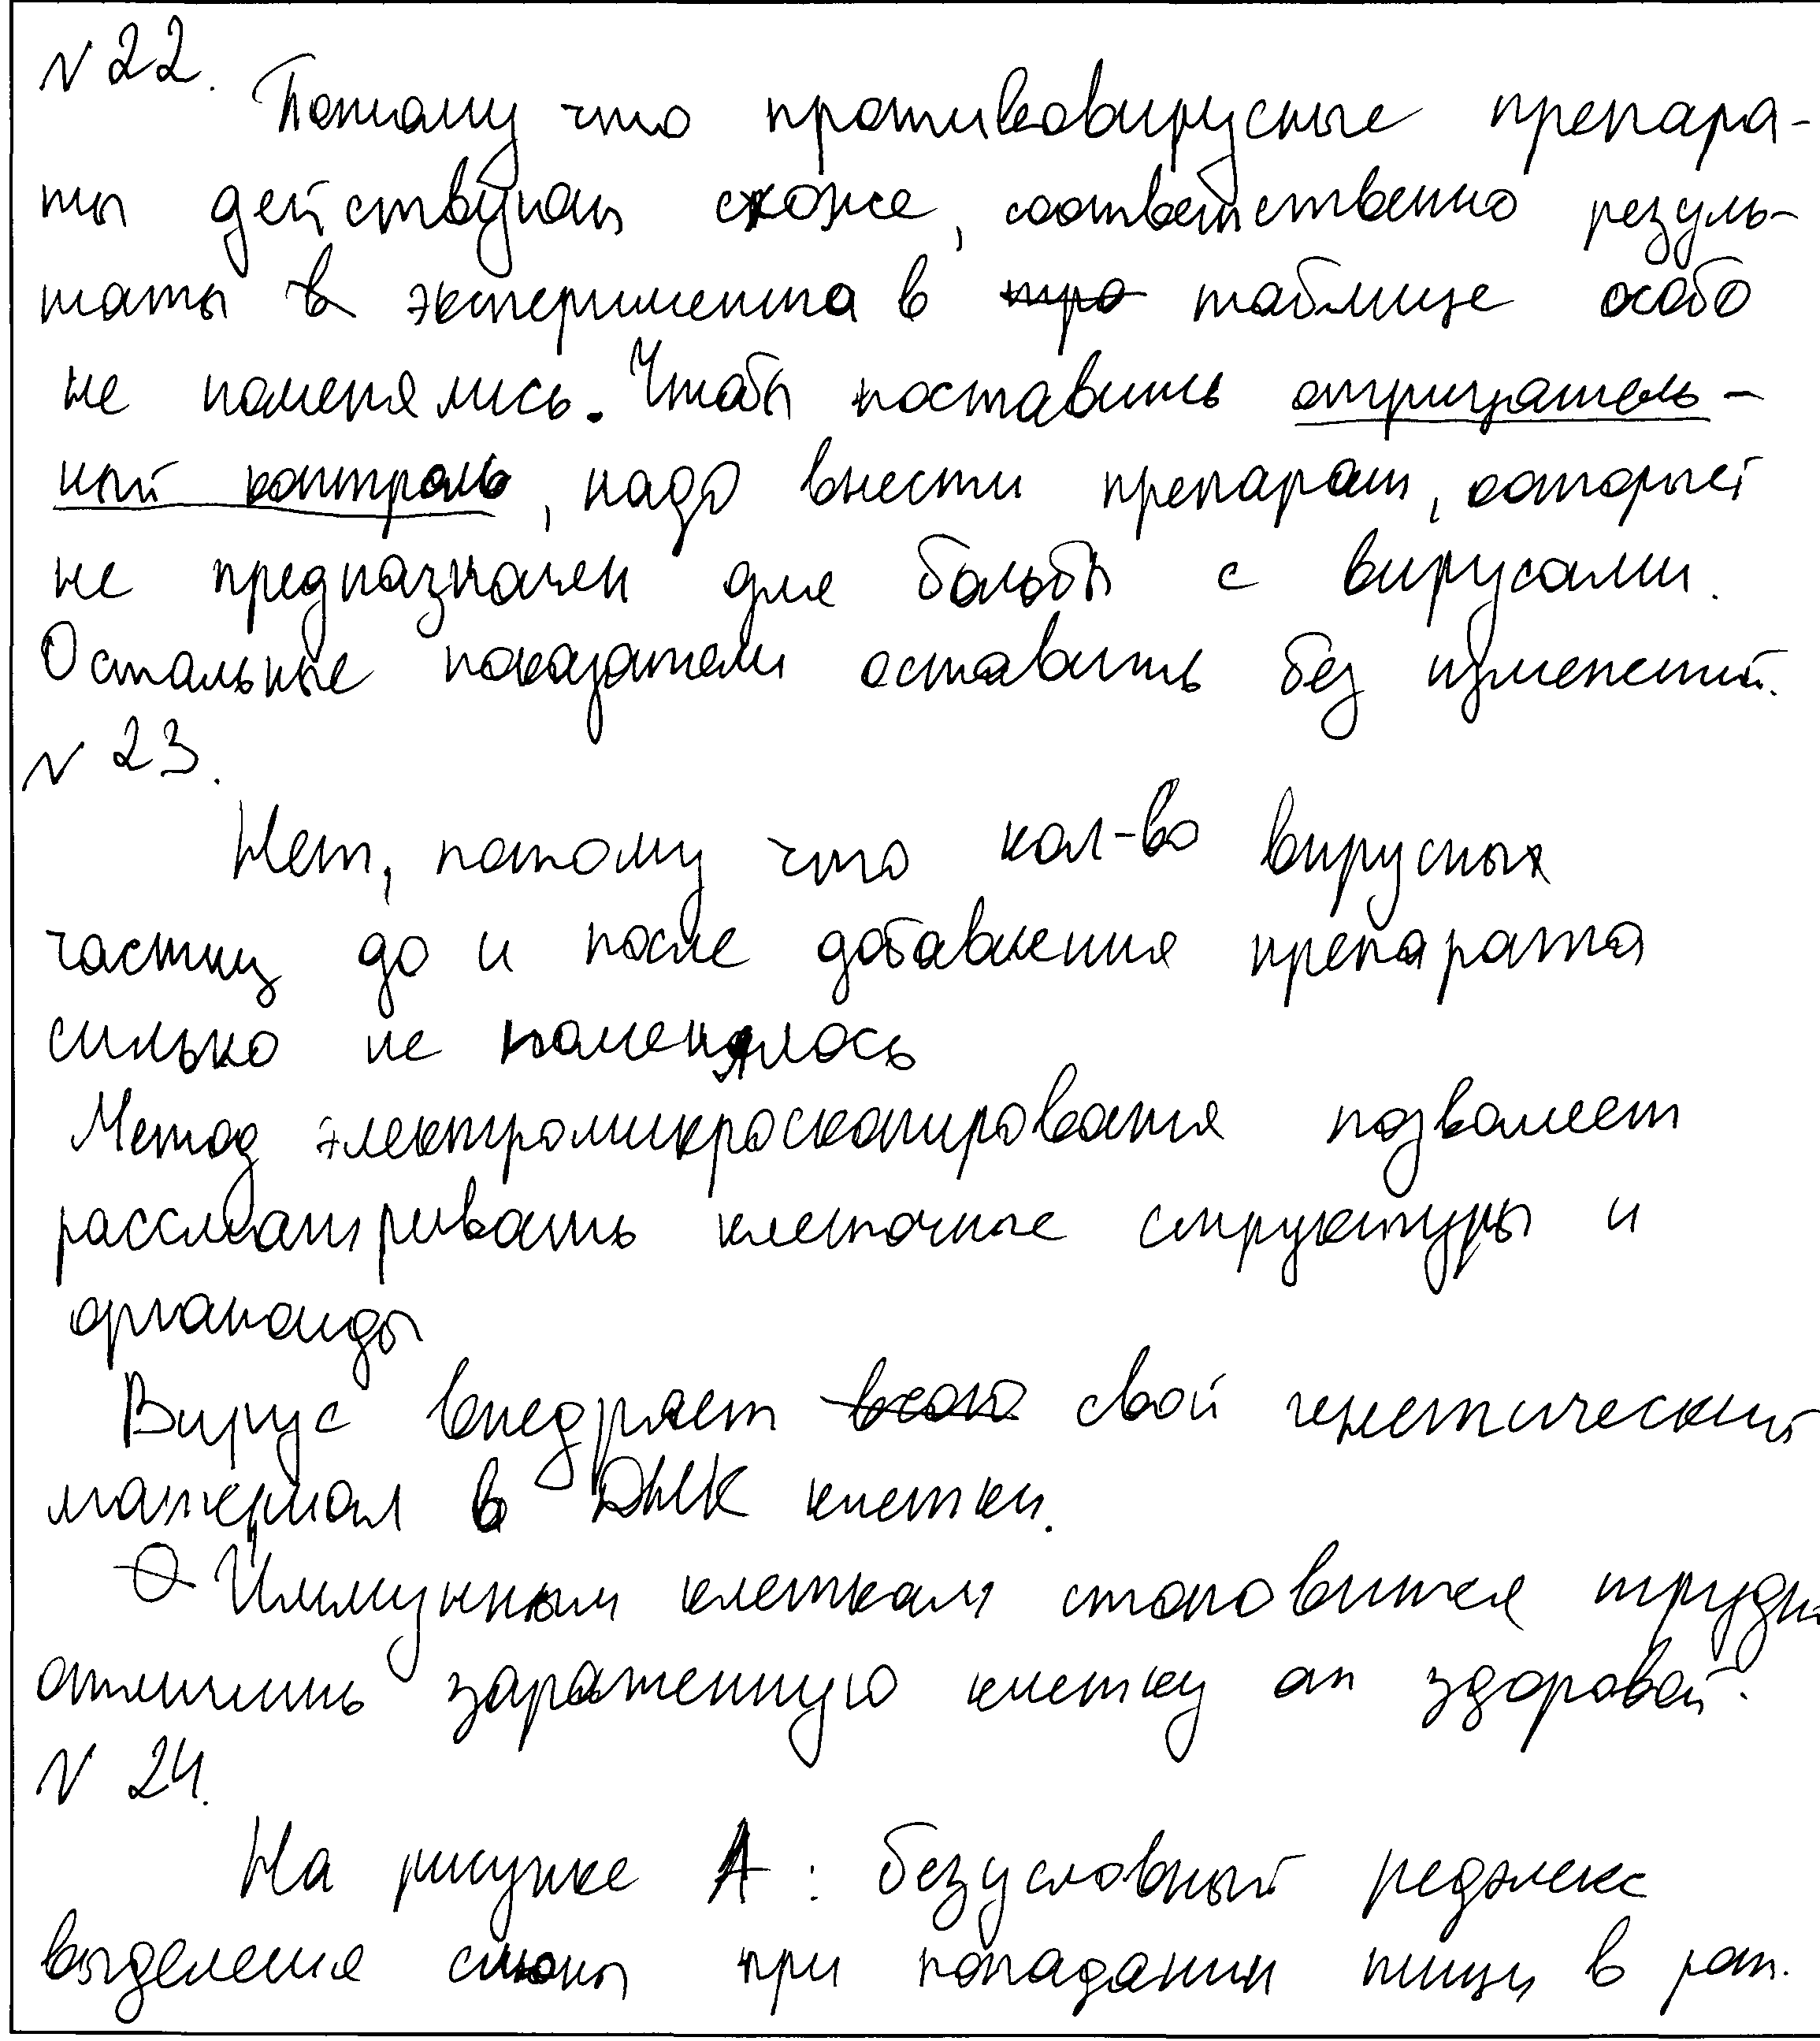 N 22.
Потому что противовирусные препара-
ты действуют схоже, соответственно резуль-
таты в эксперимента в тро таблице особо
не поменялись. Чтобы поставить отрицатель-
ный контроль, надо внести препарат, который
не предназначен для большы с вирусами.
Остальные показатели оставить без изменений.
N 23.
Нет, потому что кол-во вирусных
частиц до и после добавления препарата
сильно не поменялось
Метод электромикроскопирования позволяет
рассматривать клеточные структуры и
органоиды
Вирус внедряет свой генетический
материал в ДНК клетки.
О Иммунным клеткам становится трудно
отличить зараженную клетку от здоровой.
N 24.
На рисунке А: безусловный рефлекс
выделения слюны при попадании пищи в рот.